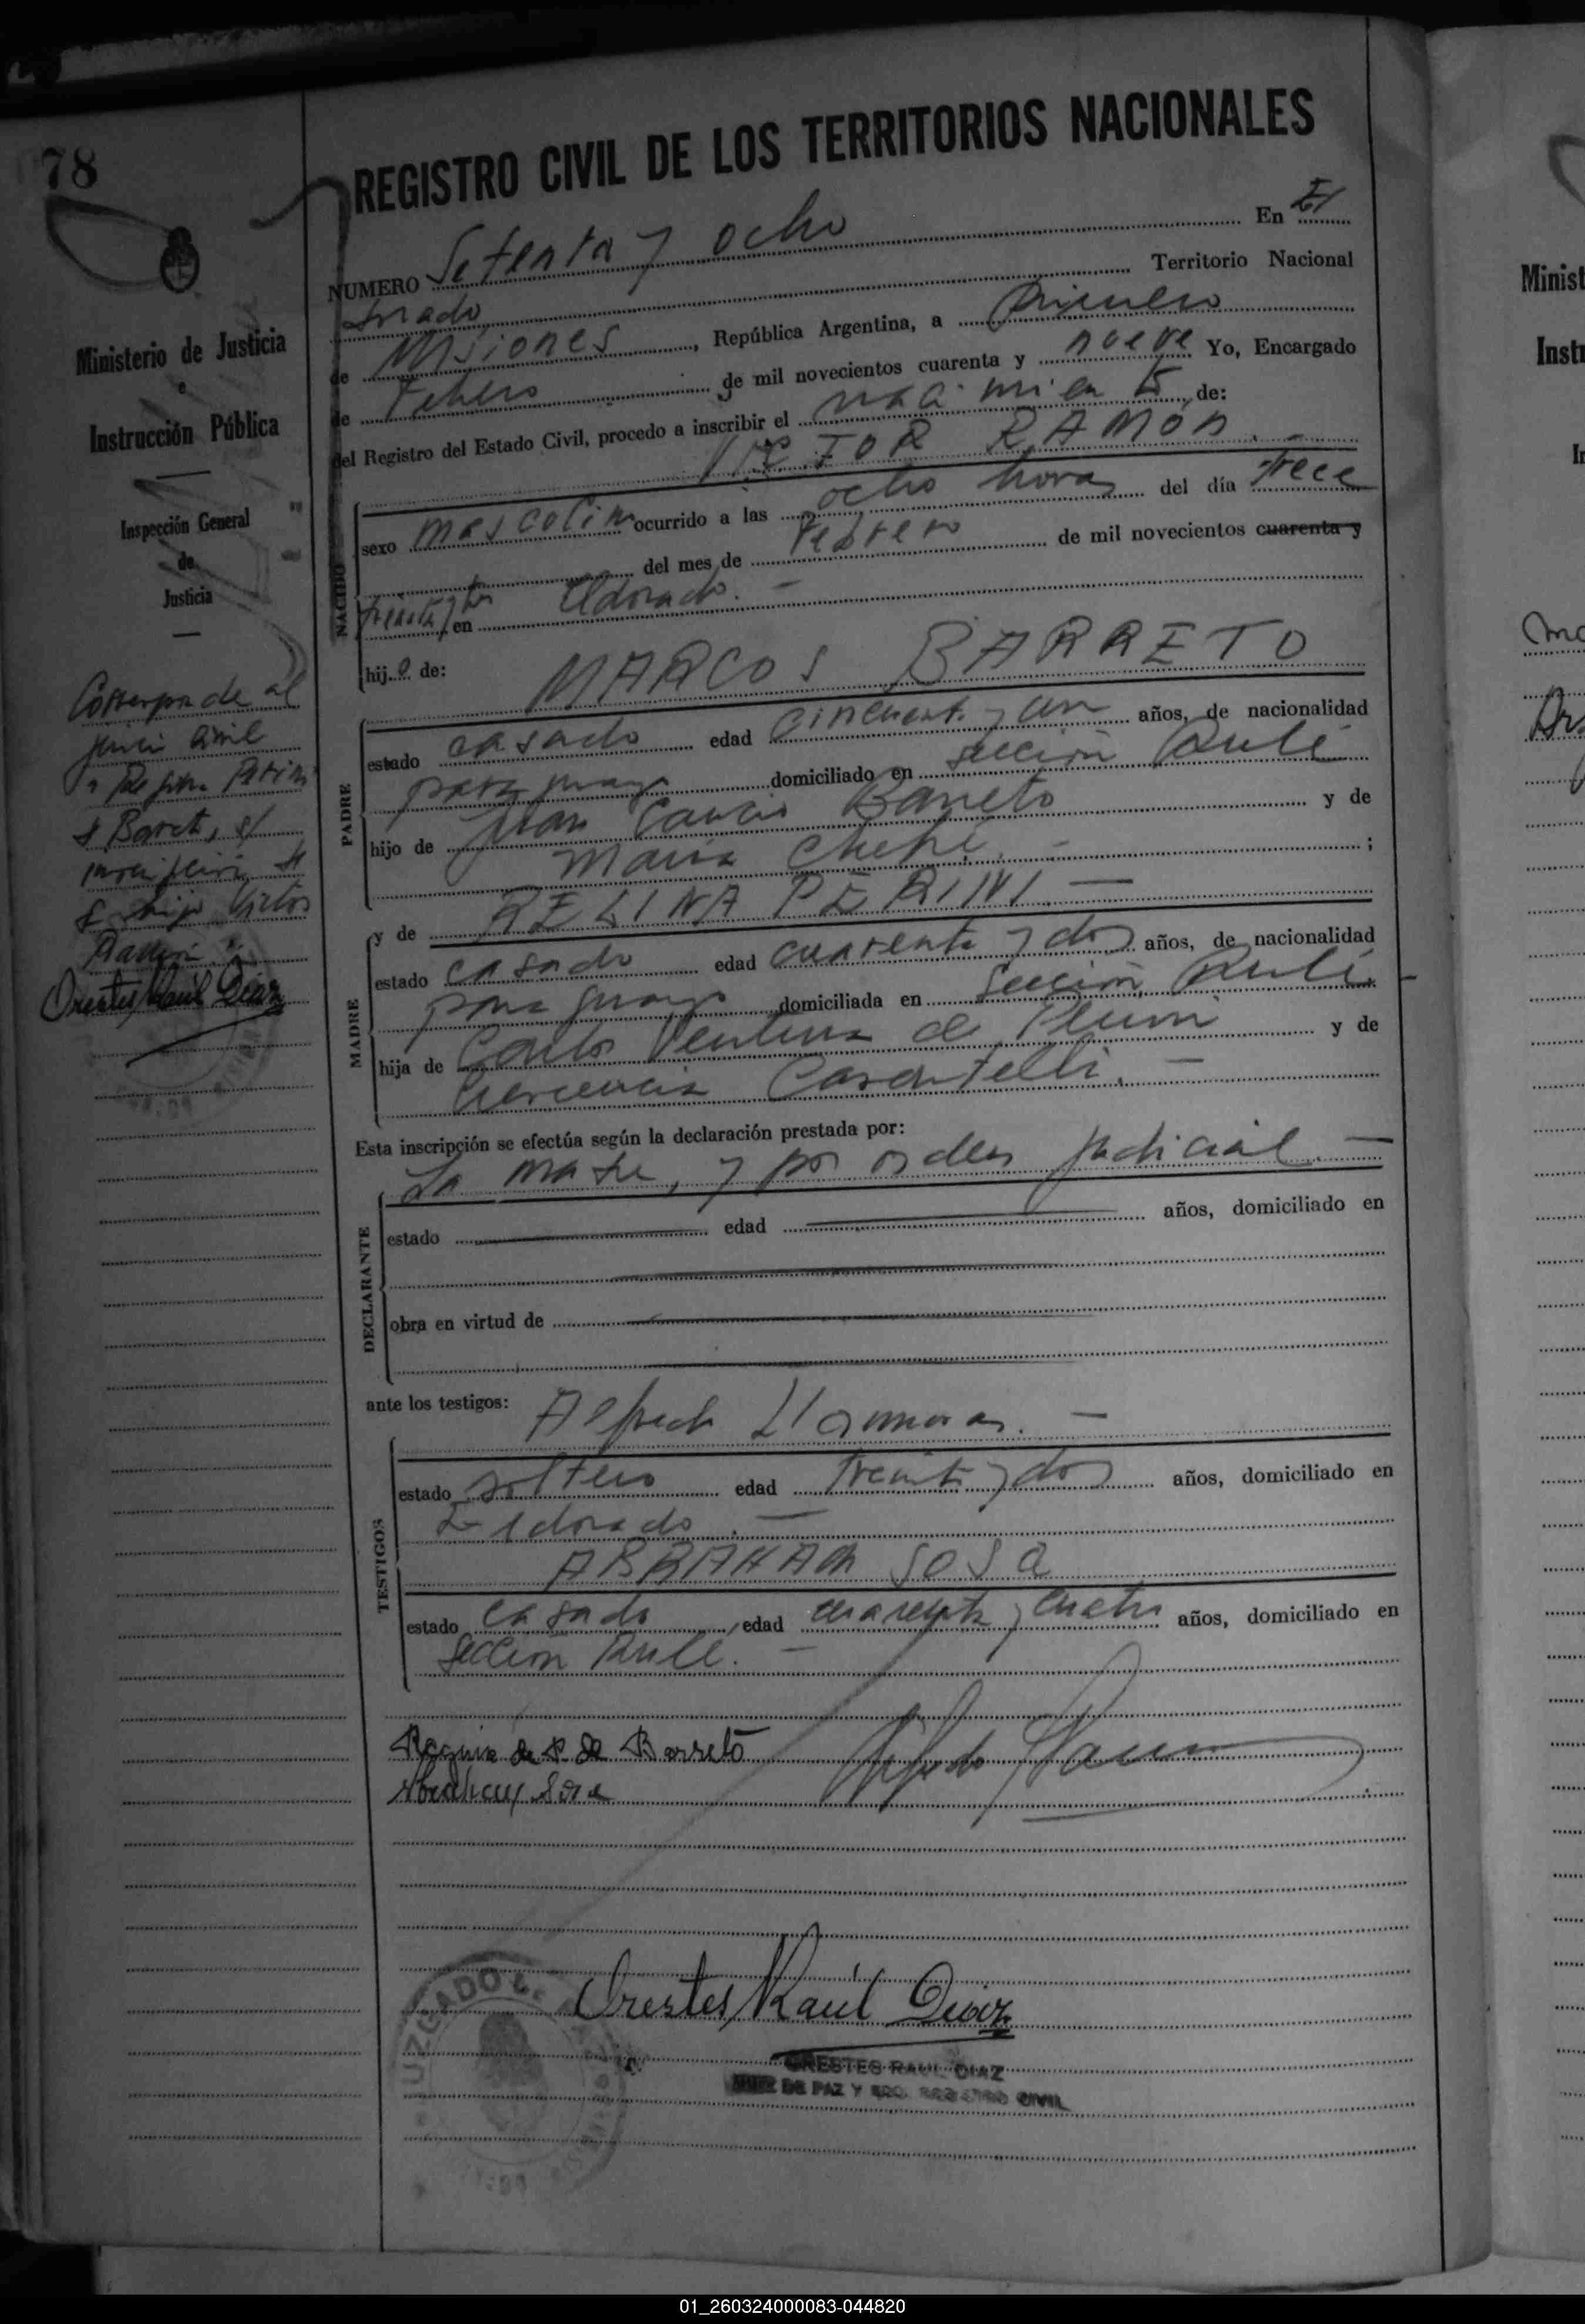 78
REGISTRO CIVIL DE LOS TERRITORIOS NACIONALES
NUMERO Setenta y ocho En El
dorado Territorio Nacional
de Misiones, República Argentina, a primero
de Febrero de mil novecientos cuarenta y nueve Yo, Encargado
del Registro del Estado Civil, procedo a inscribir el nacimiento de:
VICTOR RAMÓN.-
NACIDO
sexo masculino ocurrido a las ocho horas del día trece
del mes de Febrero de mil novecientos cuarenta y
en Eldorado.-
hijo de: MARCOS BARRETO
PADRE
estado casado edad cincuenta y un años, de nacionalidad
paraguaya domiciliado en Sección
hijo de Juan Barreto y de
María ;
y de PERINI.-
MADRE
estado casado edad cuarenta y dos años, de nacionalidad
paraguaya domiciliada en Sección
hija de Carlos Ventura de y de
Esta inscripción se efectúa según la declaración prestada por:
La madre, y por orden judicial.-
DECLARANTE
estado edad años, domiciliado en
obra en virtud de
ante los testigos: Alfredo.-
TESTIGOS
estado soltero edad treinta y dos años, domiciliado en
Eldorado.-
ABRAHAM SOSA
estado casado edad cuarenta y cuatro años, domiciliado en
Sección.-
de P. de Barreto
Abraham Sosa
Orestes Raúl Diaz
ORESTES RAUL DIAZ
JUEZ DE PAZ Y EDO. REGISTRO CIVIL
JUZGADO
Ministerio de Justicia
e
Instrucción Pública
Inspección General
de
Justicia
Corresponde al
hijo Victor
Ramón
Orestes Raúl Diaz
Minist
Instr
01_260324000083-044820